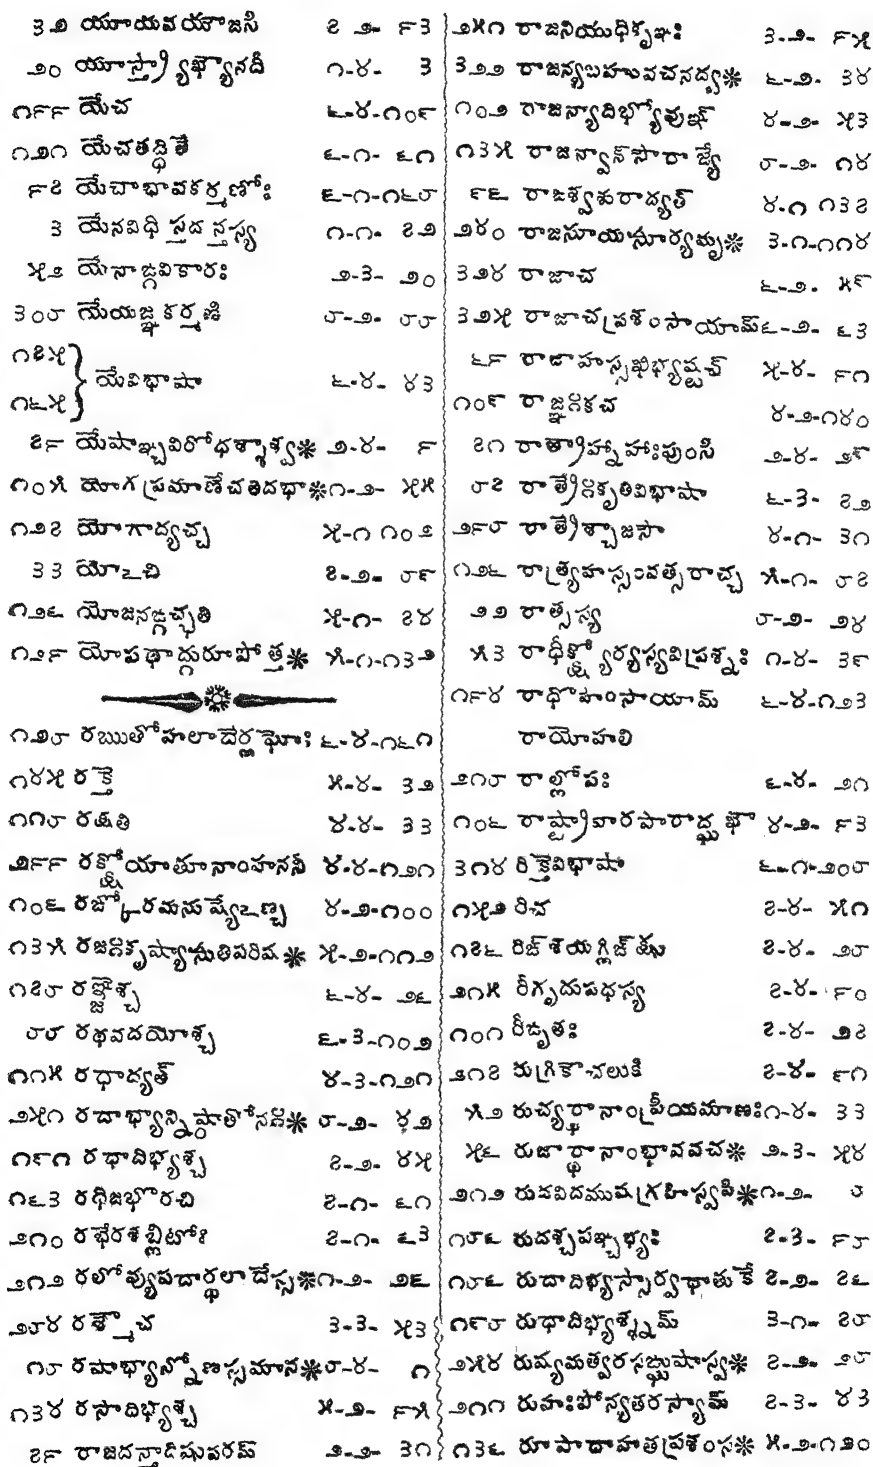 ౩౨ యూయవయౌజసి ౭-౨- ౯౩
౨౦ యూస్త్ర్యాఖ్యౌనదీ ౧-౪- ౩
౧౯౯ యేచ ౬-౪-౧౦౯
౧౨౧ యేచతద్ధితే ౬-౧- ౬౧
౯౭ యేచాభావకర్మణోః ౬-౧-౧౬౮
౩ యేనవిధి స్తద న్తస్య ౧-౧- ౭౨
౫౭ యేనాఙ్గవికారః ౨-౩- ౨౦
౩౦౮ యేయజ్ఞకర్మణి ౮-౨- ౮౮
౧౭౫
యేవిభాషా ౬-౪- ౪౩
౧౬౫
౭౯ యేషాఞ్చవిరోధశ్శాశ్వ* ౨-౪- ౯
౧౦౫ యోగప్రమాణేచతదభా*౧-౨- ౫౫
౧౨౭ యోగాద్యచ్చ ౫-౧ ౧౦౨
౩౩ యోఽచి ౭-౨- ౮౯
౧౨౬ యోజనఙ్గచ్ఛతి ౫-౧- ౭౪
౧౨౯ యోపధాద్గురూపోత్త* ౫-౧-౧౩౨
౧౨౮ రఋతోహలాదేర్లఘోః ౬-౪-౧౬౧
౧౪౫ రక్తే ౫-౪- ౩౨
౧౧౮ రక్షతి ౪-౪- ౩౩
౨౯౯ రక్షోయాతూనాంహననీ ౪-౪-౧౨౧
౧౦౬ రఙ్కోరమనుష్యేఽణ్చ ౪-౨-౧౦౦
౧౩౫ రజఃకృష్యాసుతిపరిష* ౫-౨-౧౧౨
౧౭౮ రఞ్జేశ్చ ౬-౪- ౨౬
౮౮ రథవదయోశ్చ ౬-౩-౧౦౨
౧౧౫ రథాద్యత్ ౪-౩-౧౨౧
౨౫౧ రదాభ్యాన్నిష్ఠాతోనః* ౮-౨- ౪౨
౧౯౧ రధాదిభ్యశ్చ ౭-౨- ౪౫
౧౬౩ రధిజభోరచి ౭-౧- ౬౧
౨౧౦ రభేరశబ్లిటోః ౭-౧- ౬౩
౨౧౨ రలోవ్యుపధార్థలాదేస్స*౧-౨- ౨౬
౨౮౪ రశ్మౌచ ౩-౩- ౫౩
౧౮ రషాభ్యాన్నోణస్సమాన*౮-౪- ౧
౧౩౪ రసాదిభ్యశ్చ ౫-౨- ౯౫
౭౯ రాజదన్తాదిషుపరమ్ ౨-౨- ౩౧
౨౫౧ రాజనియుధికృఞః ౩-౨- ౯౫
౩౨౨ రాజన్యబహువచనద్వ* ౬-౨- ౩౪
౧౦౨ రాజన్యాదిభ్యోవుఞ్ ౪-౨- ౫౩
౧౩౫ రాజన్వాన్సౌరాజ్యే ౮-౨- ౧౪
౯౬ రాజశ్వశురాద్యత్ ౪-౧ ౧౩౭
౨౪౦ రాజసూయసూర్యమృ* ౩-౧-౧౧౪
౩౨౪ రాజాచ ౬-౨- ౫౯
౩౨౫ రాజాచప్రశంసాయామ్౬-౨- ౬౩
౬౯ రాజాహస్సఖిభ్యష్టచ్ ౫-౪- ౯౧
౧౦౯ రాజ్ఞఃకచ ౪-౨-౧౪౦
౭౧ రాత్రాహ్నాహాఃపుంసి ౨-౪- ౨౯
౮౭ రాత్రేఃకృతివిభాషా ౬-౩- ౭౨
౨౯౮ రాత్రేశ్చాజసౌ ౪-౧- ౩౧
౧౨౬ రాత్ర్యహస్సంవత్సరాచ్చ ౫-౧- ౮౭
౨౨ రాత్సస్య ౮-౨- ౨౪
౫౩ రాధీక్ష్యోర్యస్యవిప్రశ్నః ౧-౪- ౩౯
౧౯౪ రాధోహింసాయామ్ ౬-౪-౧౨౩
రాయోహలి
౨౧౮ రాల్లోపః ౬-౪- ౨౧
౧౦౬ రాష్ట్రావారపారాద్ఘఖౌ ౪-౨- ౯౩
౩౧౪ రిక్తేవిభాషా ౬-౧-౨౦౮
౧౫౨ రిచ ౭-౪- ౫౧
౧౭౬ రిఙ్శయగ్లిఙ్క్షు ౭-౪- ౨౮
౨౧౫ రీగృదుపధస్య ౭-౪- ౯౦
౧౦౧ రీఙృతః ౭-౪- ౨౭
౨౧౭ రుగ్రికౌచలుకి ౭-౪- ౯౧
౫౨ రుచ్యర్థానాంప్రీయమాణః౧-౪- ౩౩
౫౬ రుజార్థానాంభావవచ* ౨-౩- ౫౪
౨౧౨ రుదవిదముషగ్రహిస్వపి*౧-౨- ౮
౧౮౬ రుదశ్చపఞ్చభ్యః ౭-౩- ౯౮
౧౮౬ రుదాదిభ్యస్సార్వధాతుకే ౭-౨- ౭౬
౧౯౮ రుధాదిభ్యశ్శ్నమ్ ౩-౧- ౭౮
౨౫౪ రుష్యమత్వరసఙ్ఘుషాస్వ* ౭-౨- ౨౮
౨౧౧ రుహఃపోన్యతరస్యామ్ ౭-౩- ౪౩
౧౩౬ రూపాదాహతప్రశంస* ౫-౨-౧౨౦